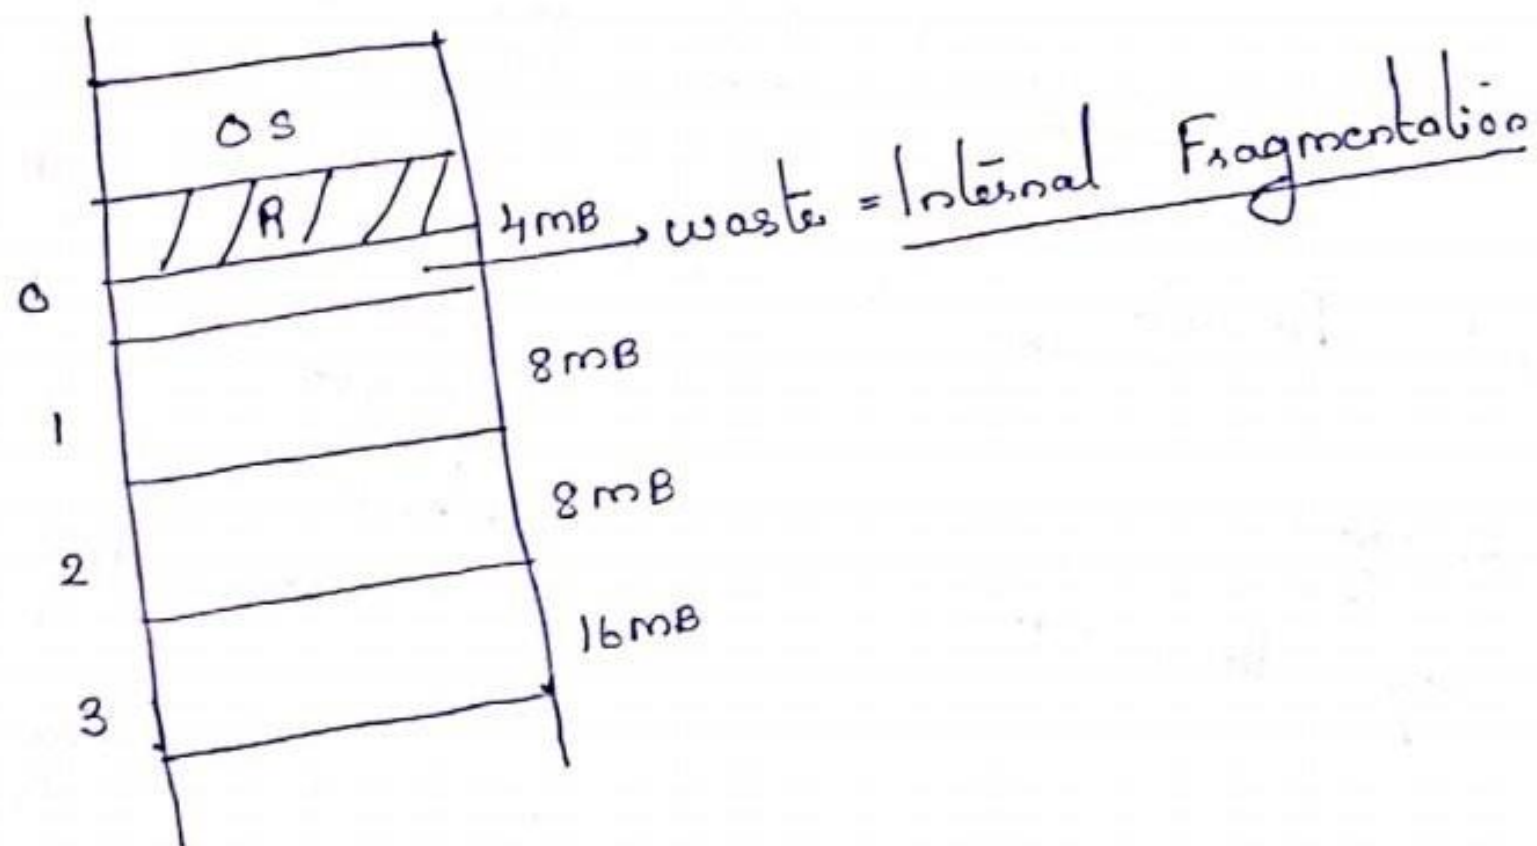 OS
R
4MB → waste = Internal Fragmentation
0
8MB
1
8MB
2
16MB
3